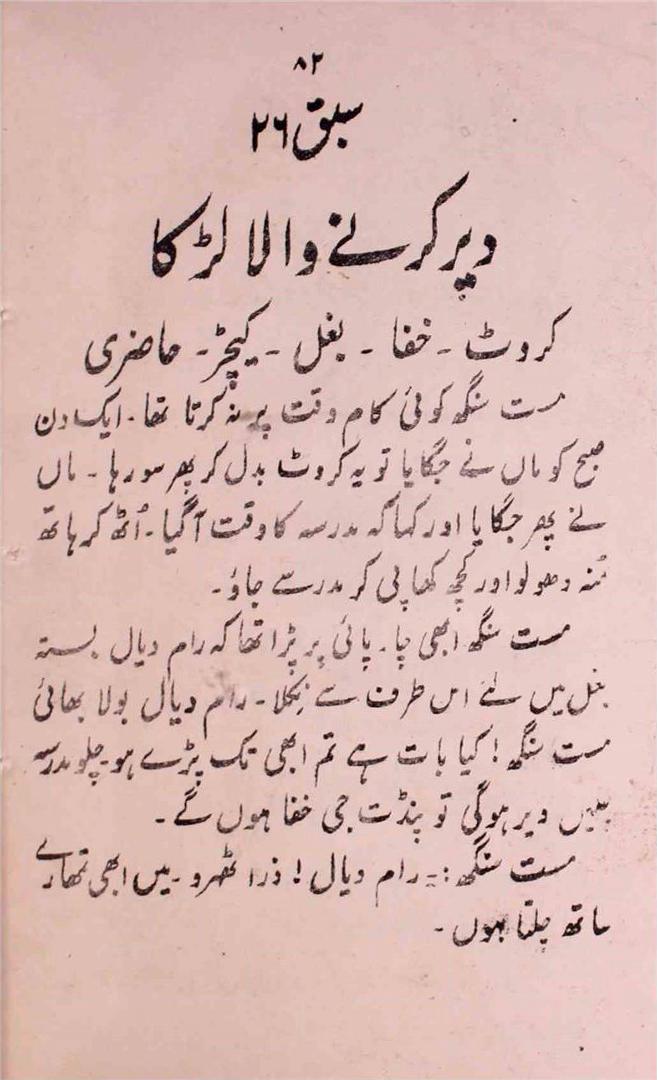 ۸۲
سبق ۲۶
دیر کرنے والا لڑکا
کروٹ ۔ خفا ۔ بغل ۔ کیچڑ ۔ حاضری
مست سنگھ کوئی کام وقت پر نہ کرتا تھا ۔ ایک دن
صبح کو ماں نے جگایا تو یہ کروٹ بدل کر پھر سو رہا ۔ ماں
نے پھر جگایا اور کہا کہ مدرسہ کا وقت آگیا ۔ اُٹھ کر ہاتھ
مُنہ دھولو اور کچھ کھا پی کر مدرسے جاؤ ۔
مست سنگھ ابھی چا۔پائی پر پڑا تھا کہ رام دیال بستہ
بغل میں لئے اس طرف سے نکلا ۔ رام دیال بولا بھائی
مست سنگھ ! کیا بات ہے تم ابھی تک پڑے ہو ۔ چلو مدرسہ
میں دیر ہوگی تو پنڈت جی خفا ہوں گے ۔
مست سنگھ :۔ رام دیال ! ذرا ٹھہرو ۔ میں ابھی تمھارے
ساتھ چلتا ہوں ۔